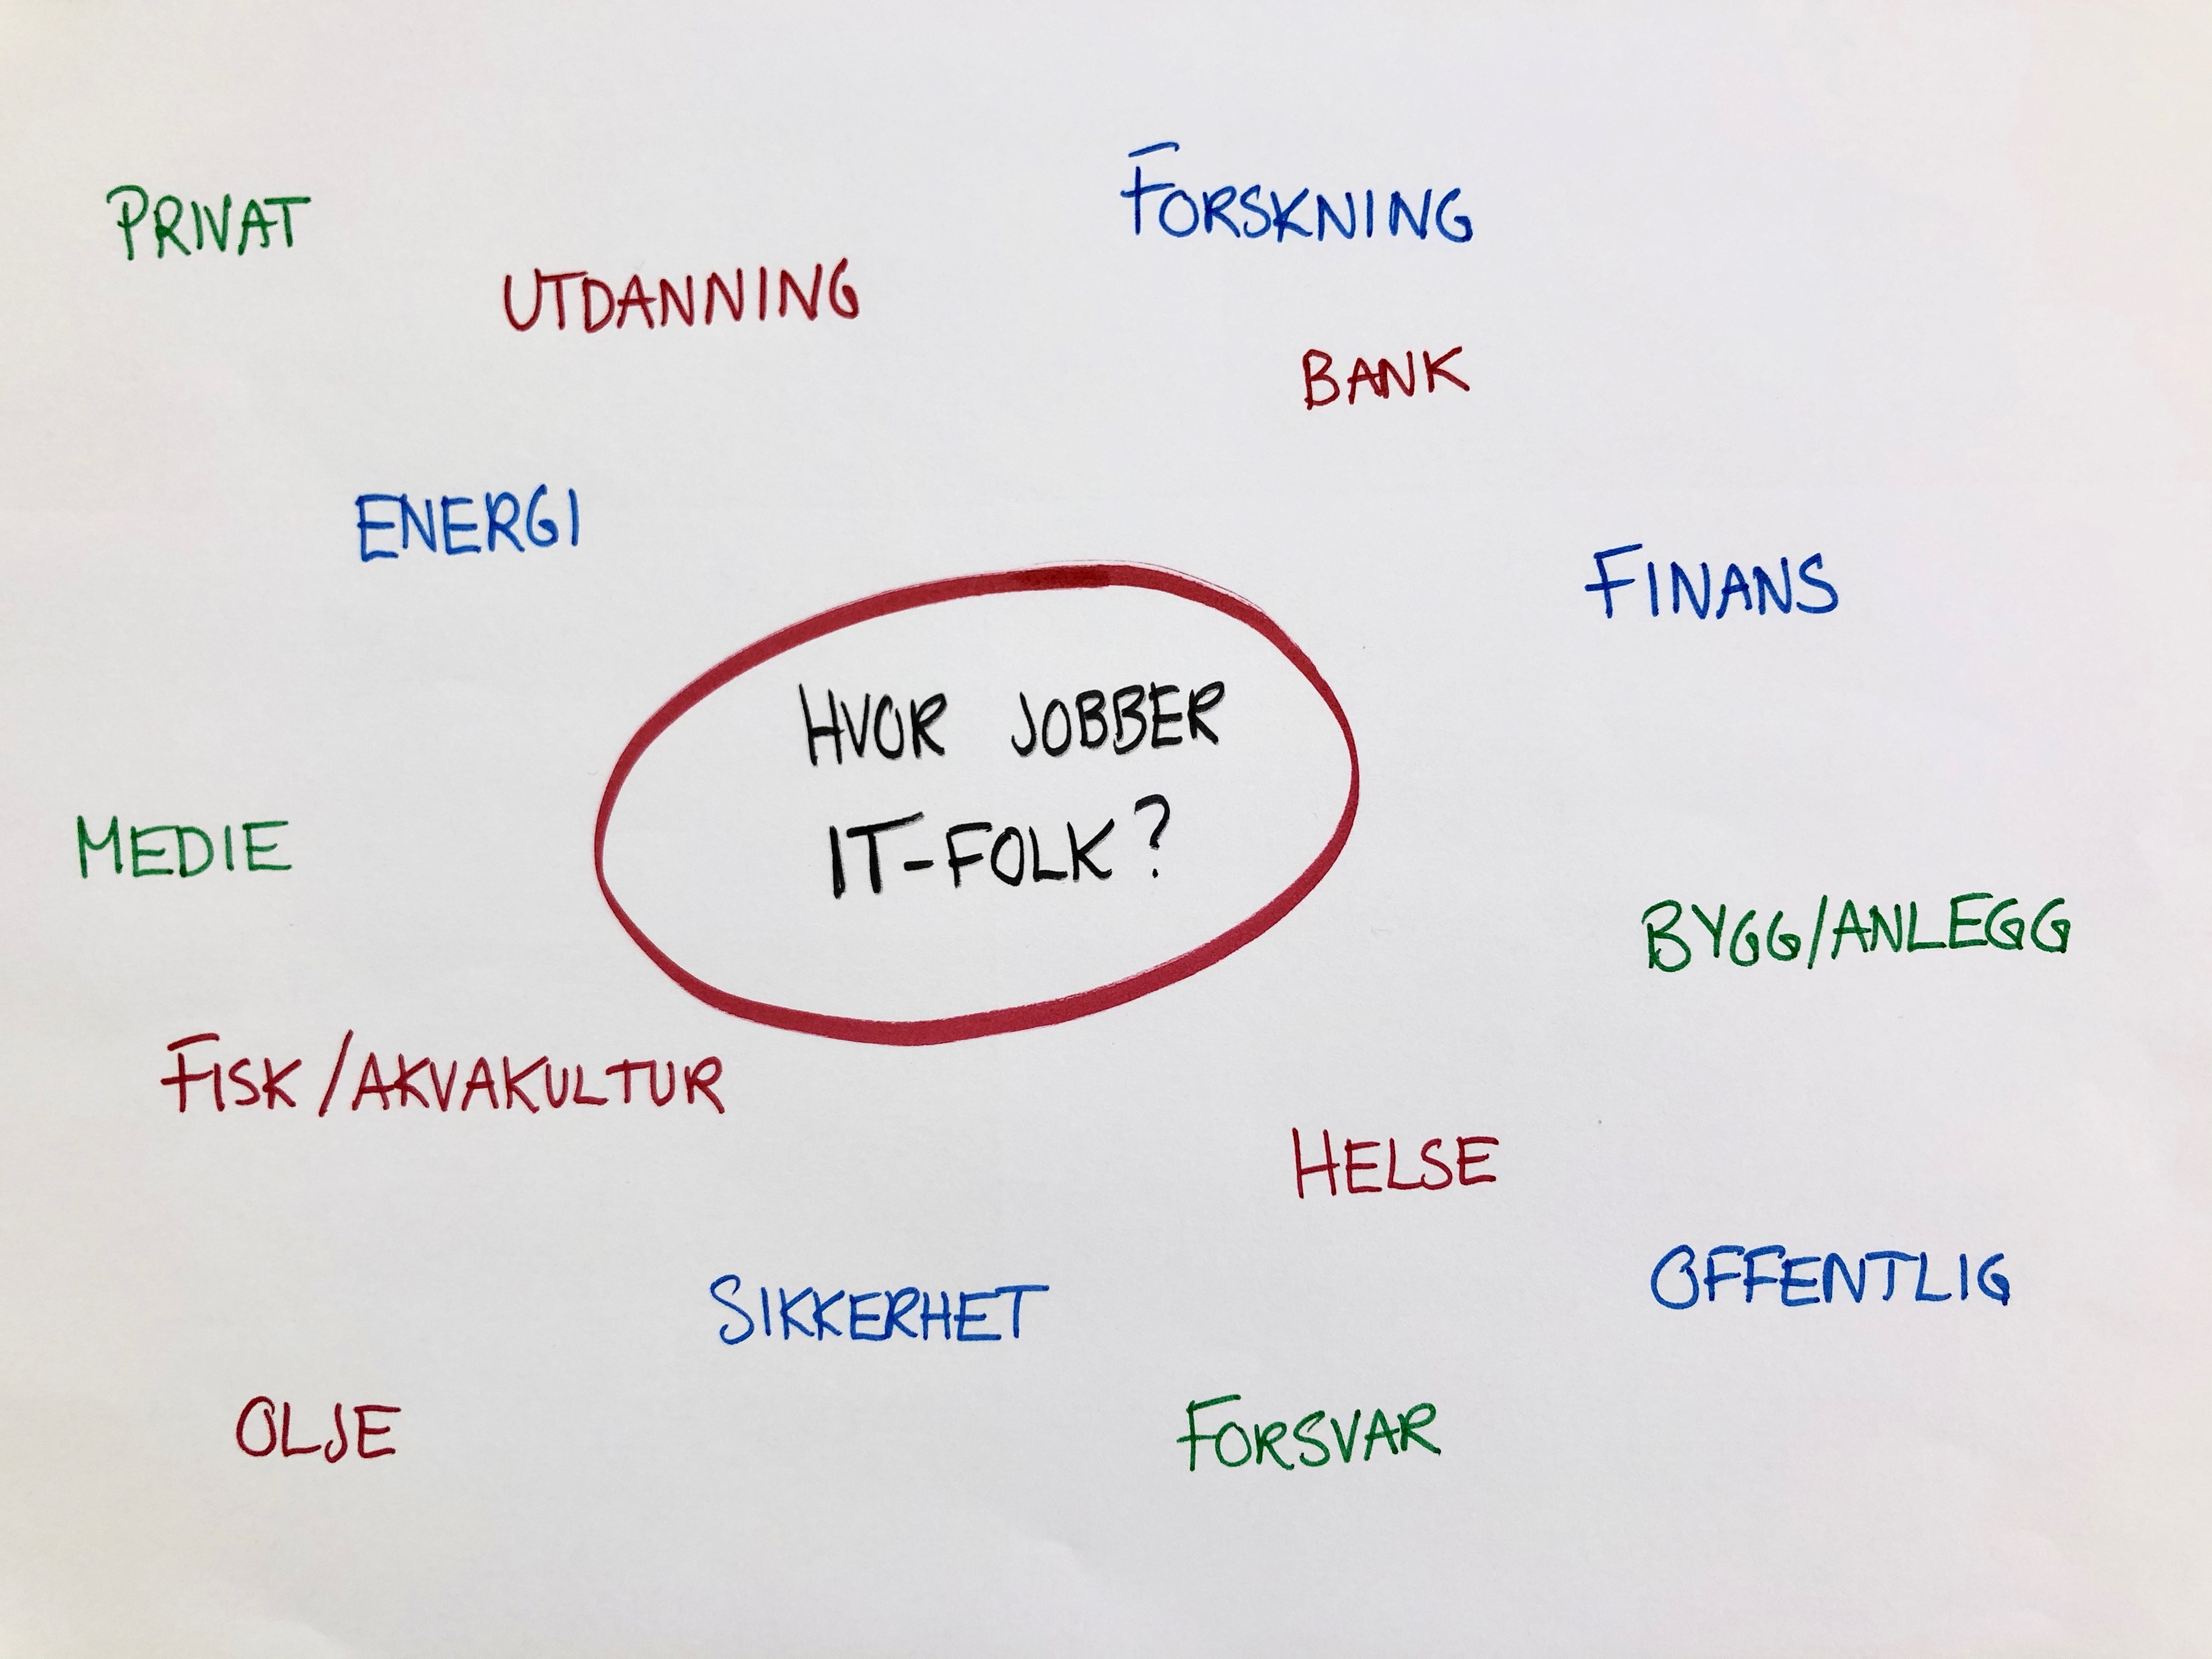 FORSKNING
PRIVAT
UTDANNING
BANK
ENERGI
FINANS
HVOR JOBBER
IT-FOLK?
MEDIE
BYGG/ANLEGG
FISK/AKVAKULTUR
HELSE
OFFENTLIG
SIKKERHET
OLJE
FORSVAR